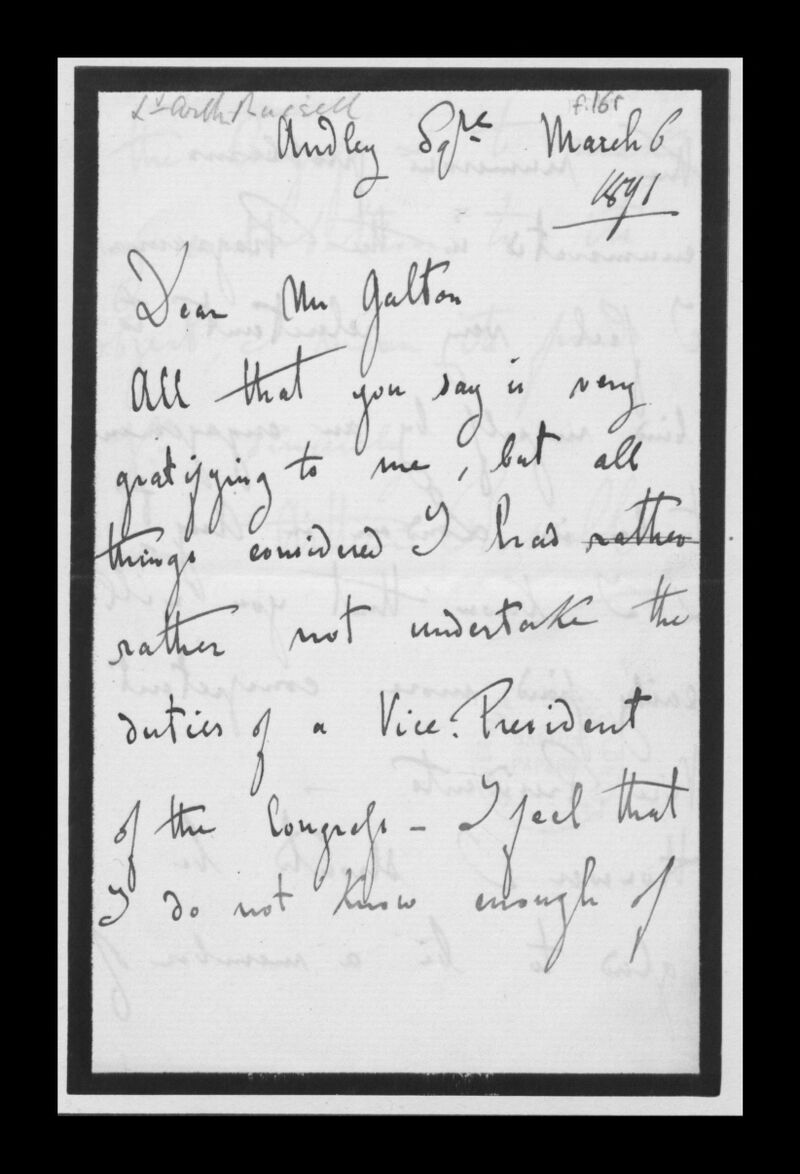 Ld Arth. Russell
f.16r
Audley Sqre March 6
1891
Dear Mr Galton
All that you say is very
gratifying to me, but all
things considered I had rather
rather not undertake the
duties of a Vice-President
of the Congress - I feel that
I do not know enough of